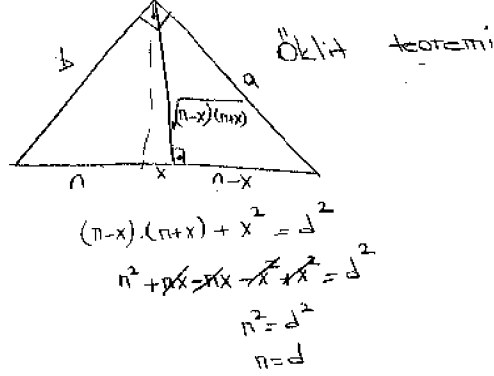 Öklit teoremi
b
a
√(n-x)(n+x)
n
x
n-x
(n-x).(n+x) + x² = d²
n² + nx - nx - x² + x² = d²
n² = d²
n = d